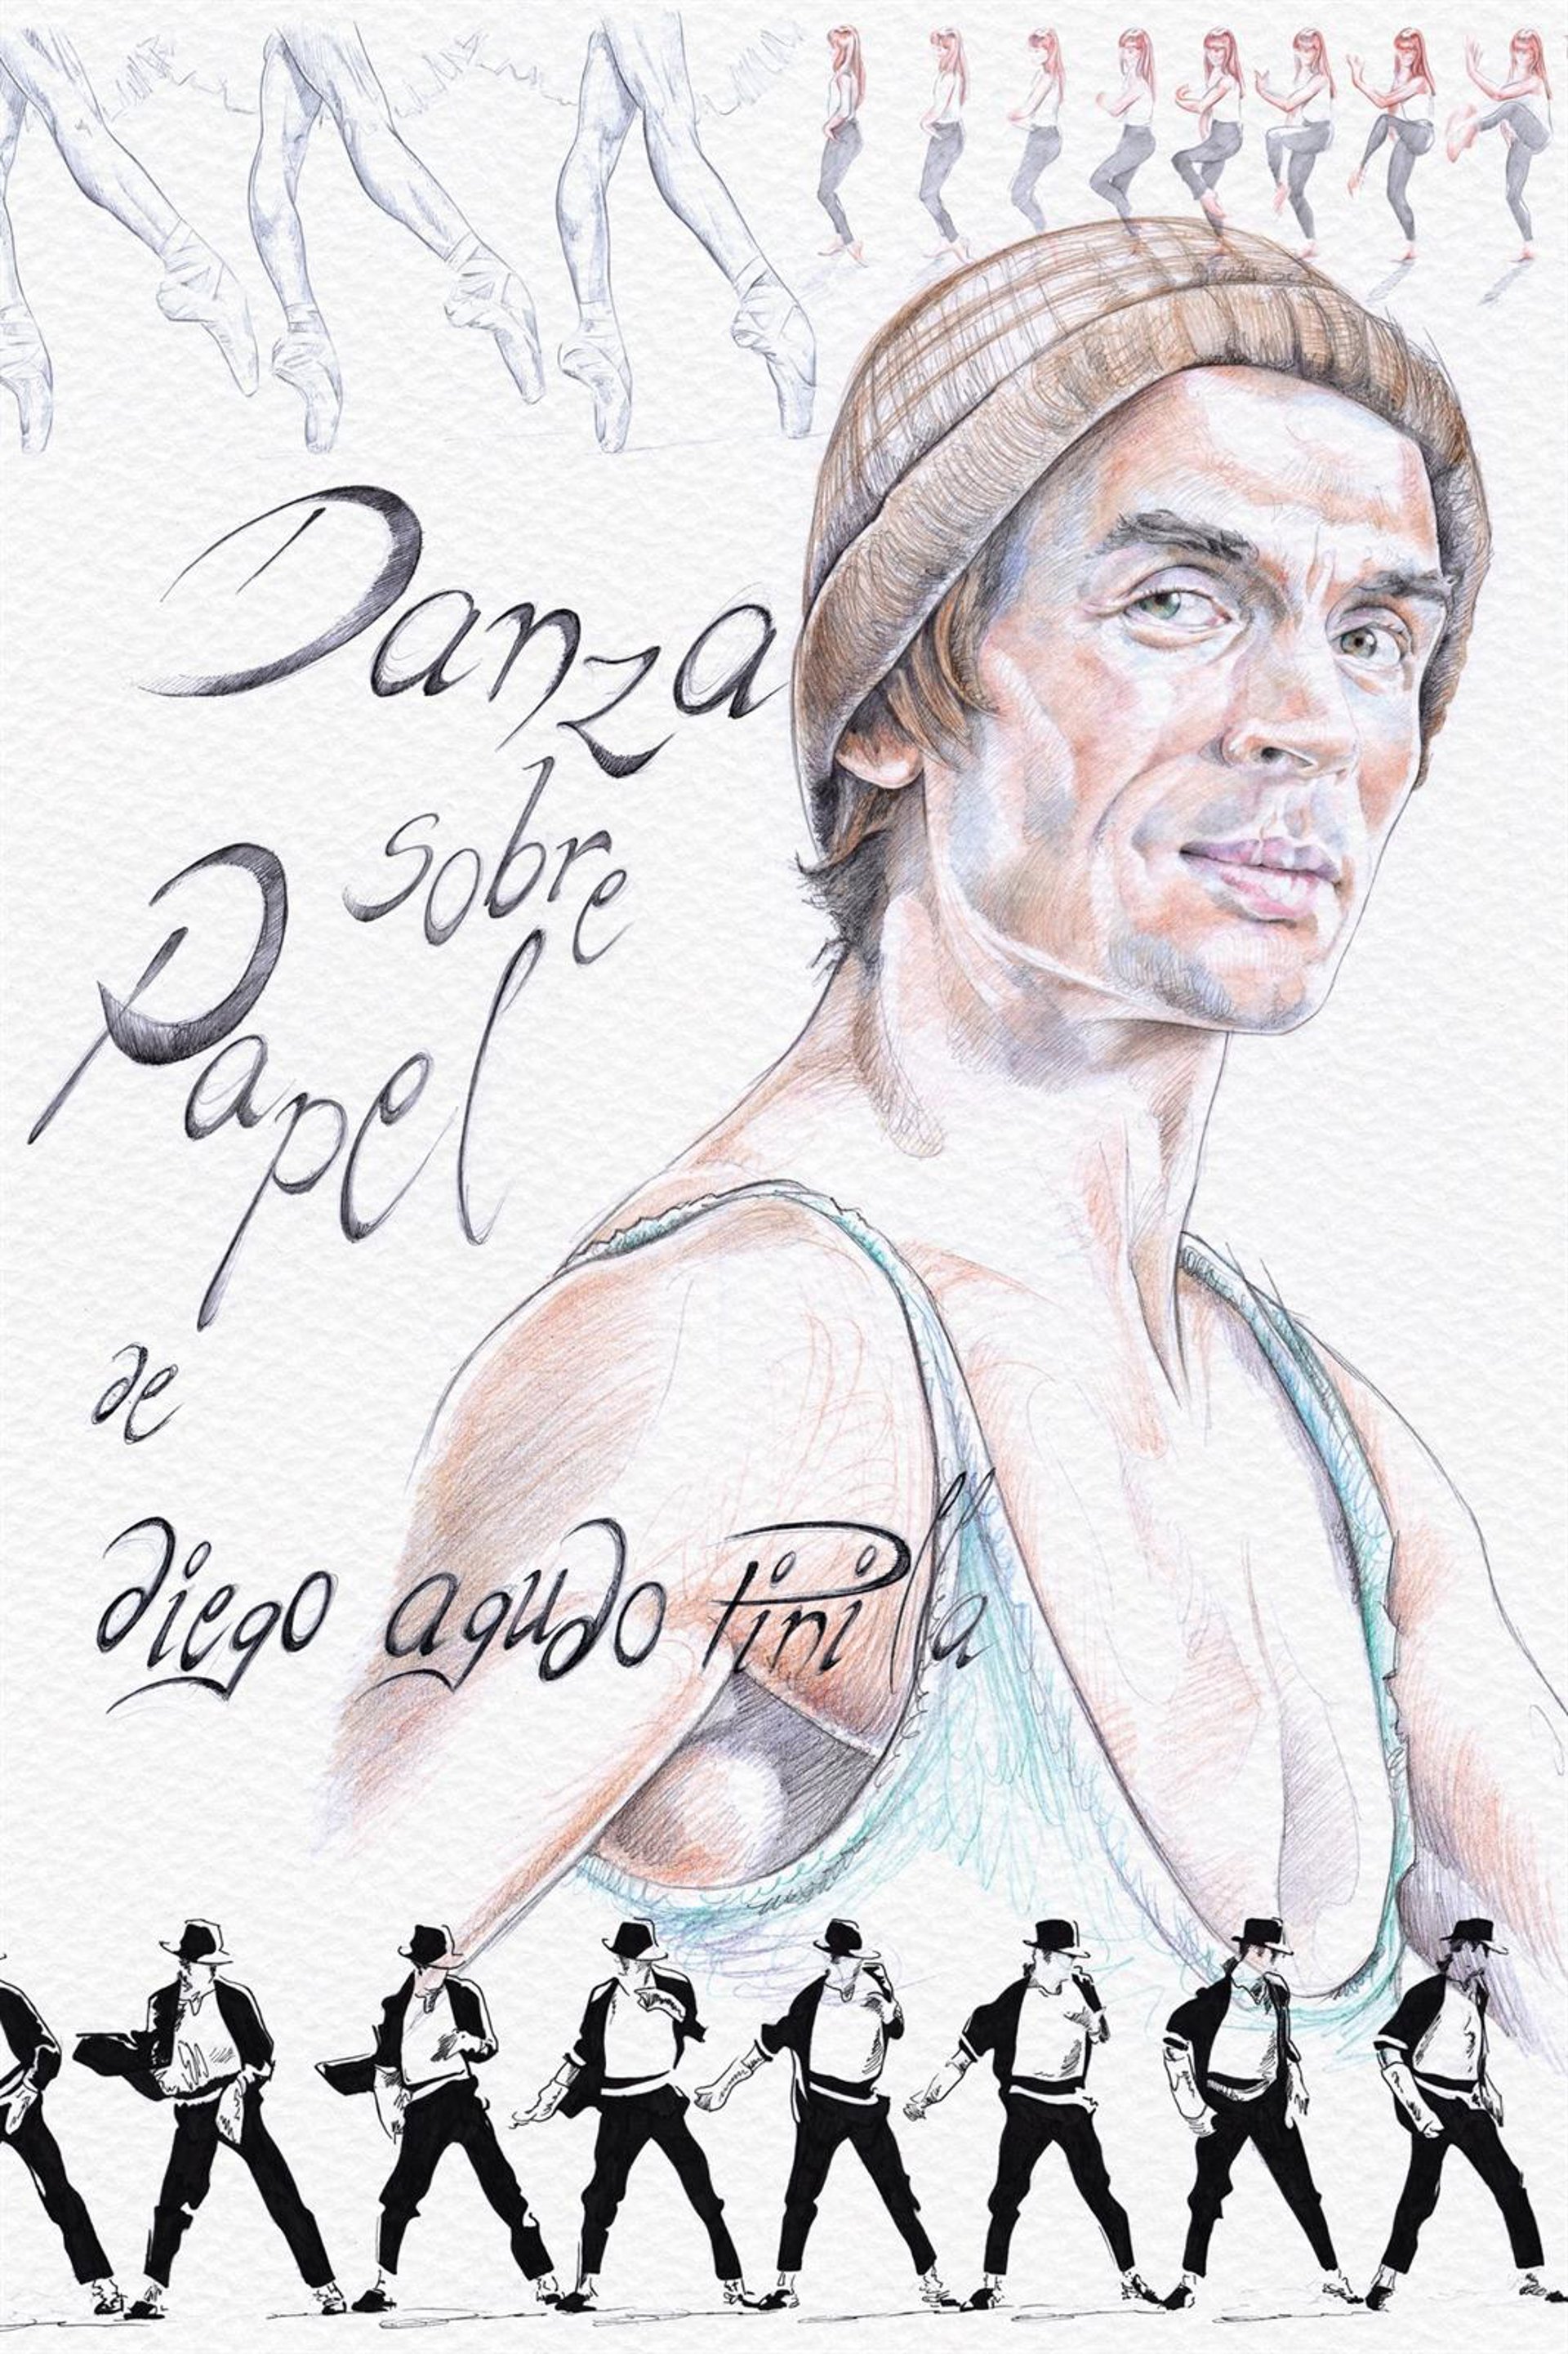 Danza
sobre
Papel
de
diego agudo Pinilla